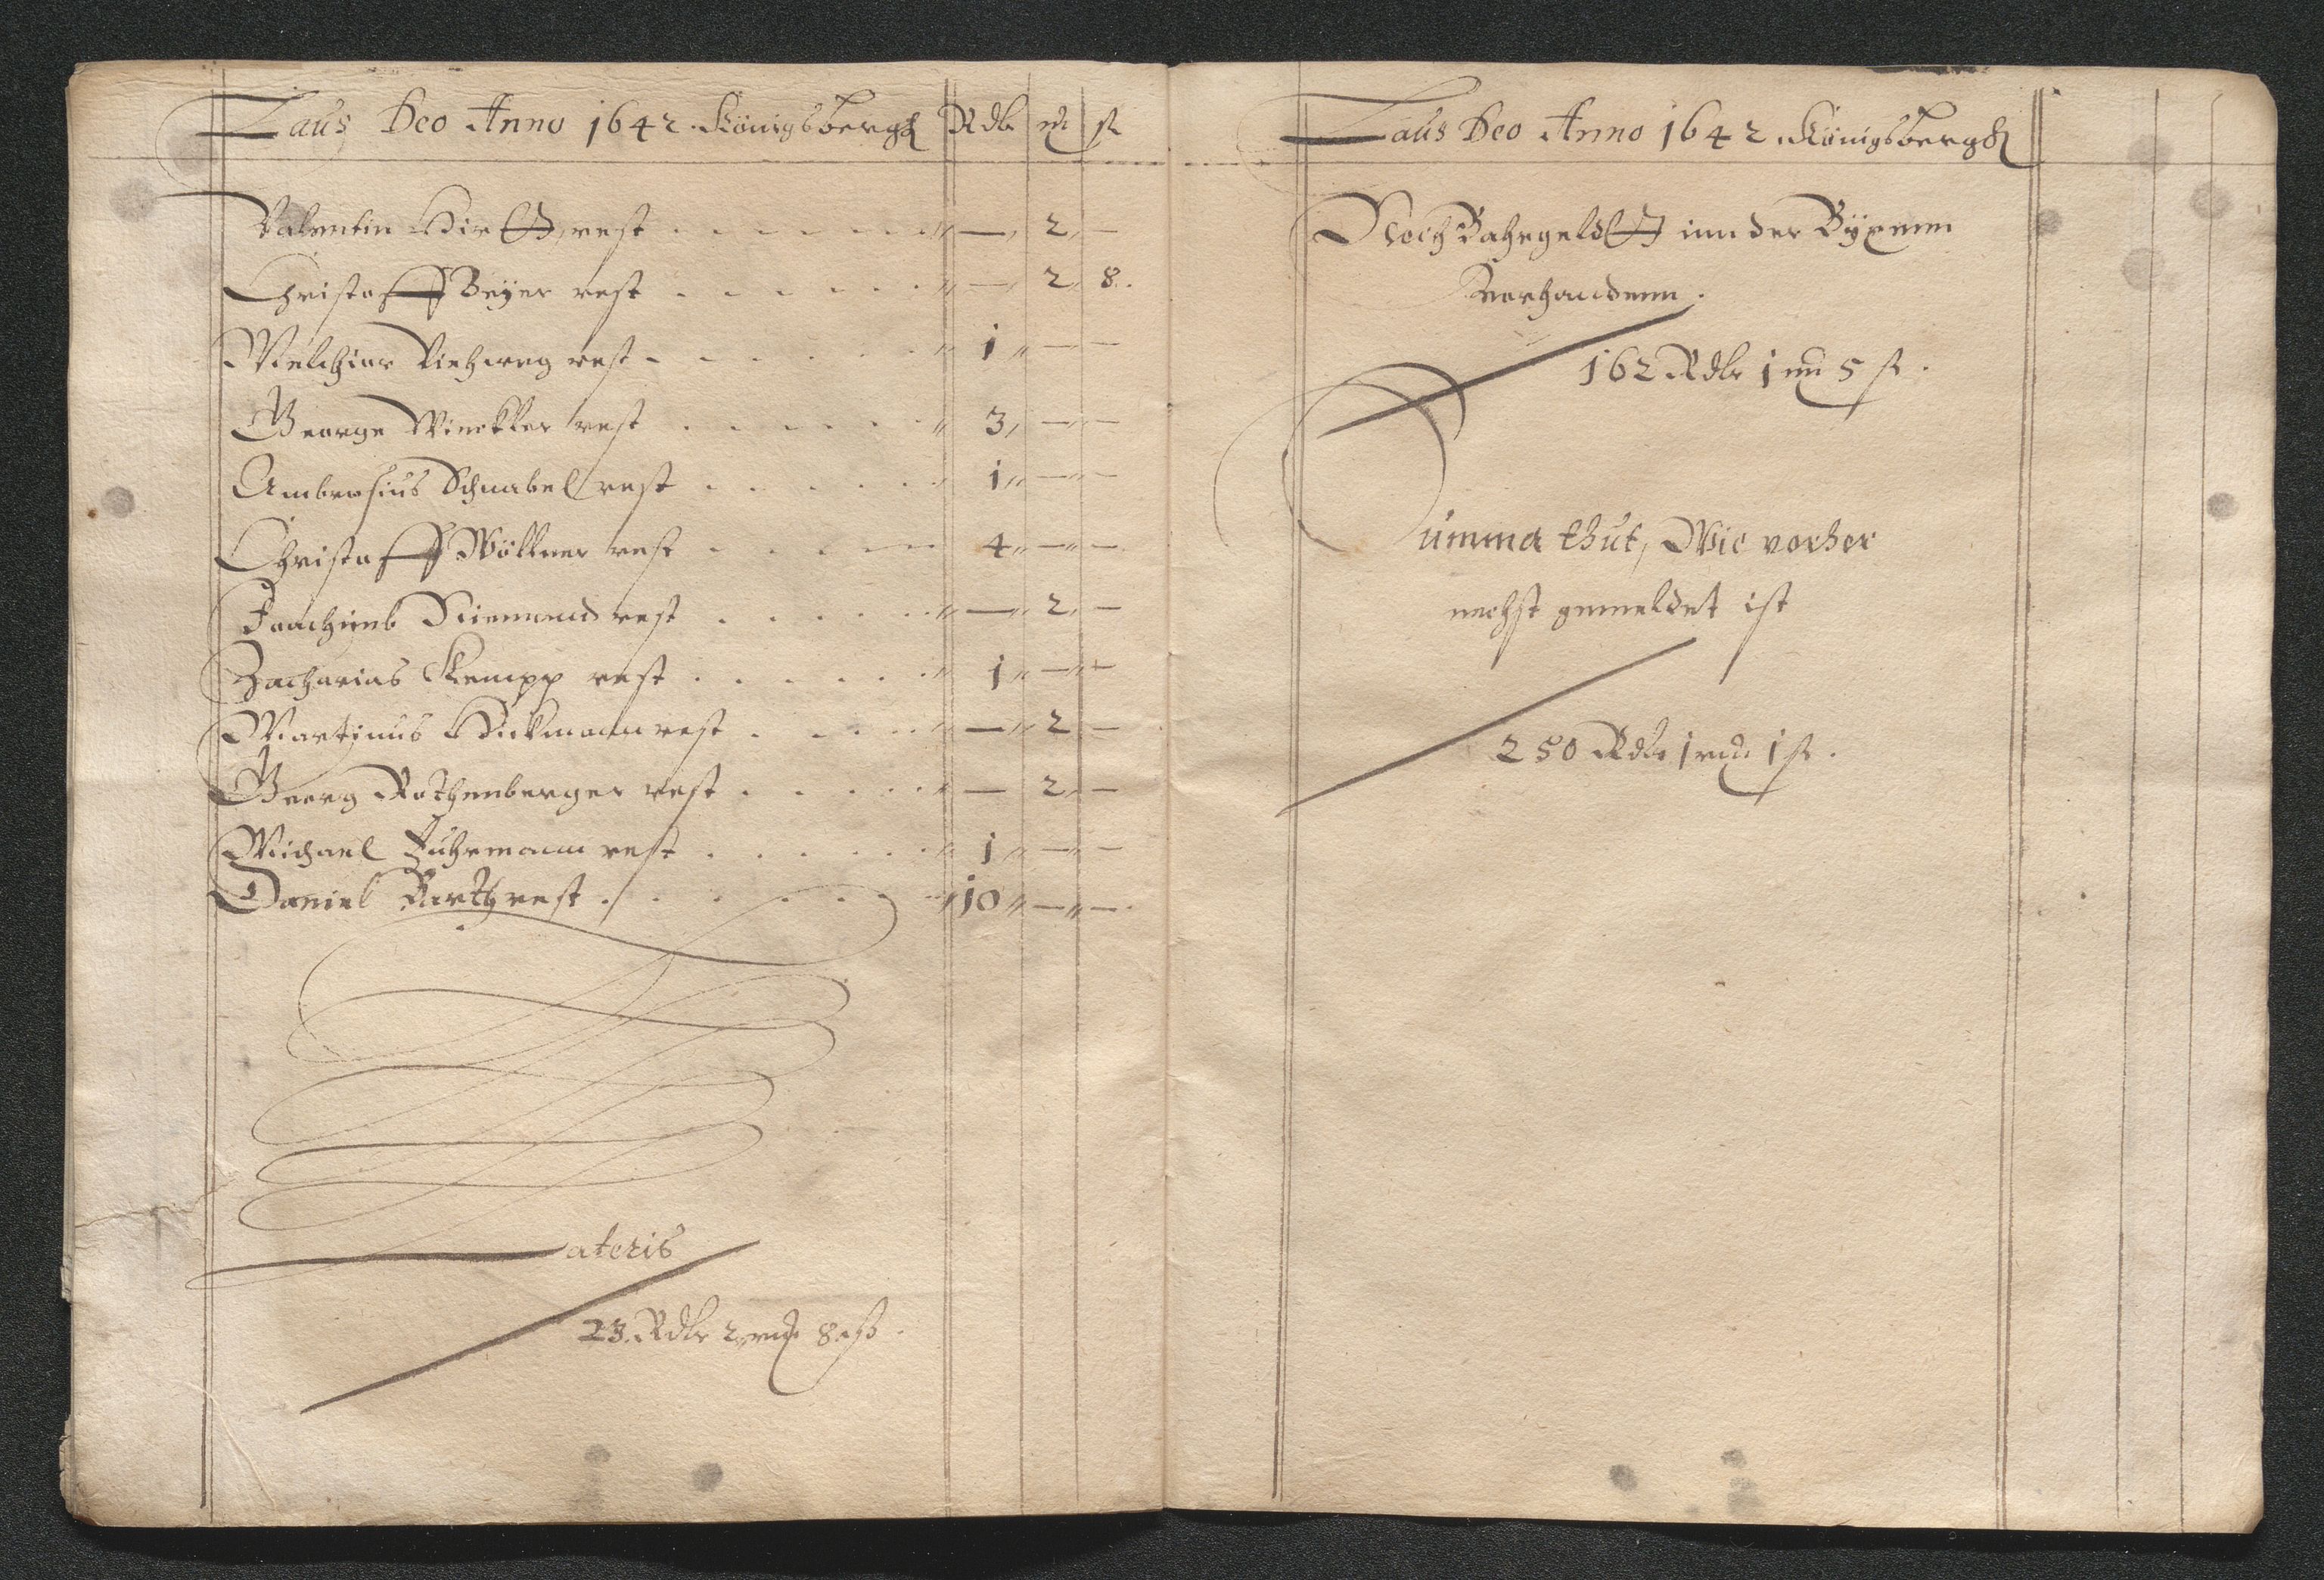 Laus Deo Anno 1642. Königsbergk Rdlr m ß
Valentin Hirsch, rest . . . . . . . — 2 —
Christoff Beyer rest . . . . . . — 2 8.
Melchior Viehweg rest . . . . . . 1 — —
George Winckler rest . . . . . . 3 — —
Ambrosius Schnabel rest . . . . . . 1 — —
Christoff Wölkner rest . . . . . 4 — —
Joachimb Niemand rest . . . . . . — 2 —
Zacharias Kempp rest . . . . . . 1 — —
Martinus Hickmann rest . . . . . — 2 —
Georg Rothenberger rest . . . . . — 2 —
Michael Fuhrmann rest . . . . . . 1 — —
Daniel Barth rest . . . . . . 10 — —
Lateris
23. Rdlr 2 m 8 ß.
Laus Deo Anno 1642. Königsbergk
Noch Bahrgeldt inn der Büxenn
Vorhandenn.
162 Rdlr 1 m 5 ß.
Summa thut, Wie vorher
nechst gemeldet ist
250 Rdlr 1 m 1 ß.